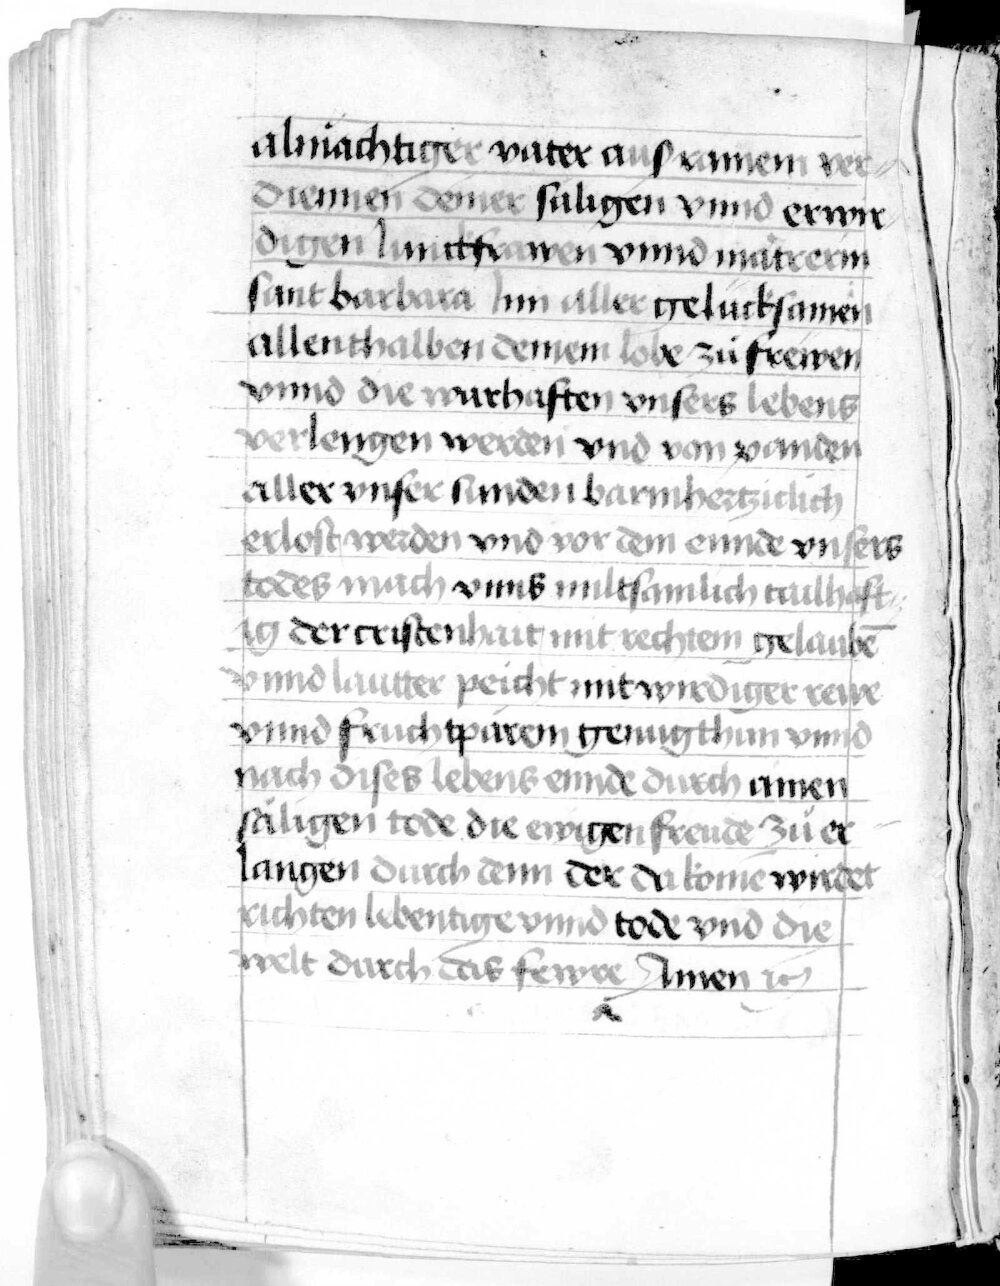 almächtiger vater aus rainem ver
diennen deiner säligen vnnd erwir
digen Junckfrawen vnnd märrerin
sant barbara Inn aller gelücksamen
allenthalben deinem lobe zů frewen
vnnd die warhaften vnsers lebens
verlengen werden vnd von panden
aller vnser sünden barmhertziclich
erlost werden vnd vor dem ennde vnsers
todes mach vnns miltsamlich tailhaft
ig der cristenhait mit rechtem gelaube
vnnd lautter peicht mit wirdiger rewe
vnnd fruchtparem genugthun vnnd
nach dises lebens ennde durch ainen
säligen tode die ewigen freude zů er
langen durch denn der da kome wirdet
richten lebentige vnnd tode vnd die
welt durch das fewre Amen